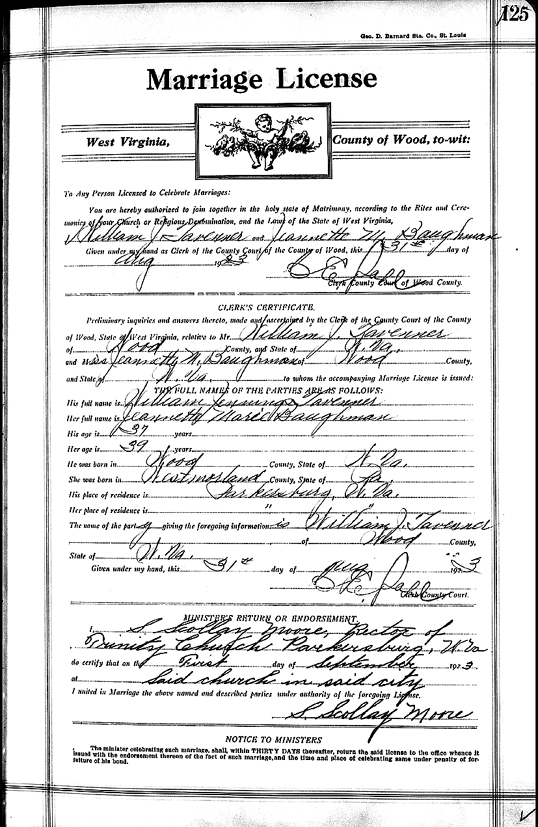 125
Geo. D. Barnard Sta. Co., St. Louis
Marriage License
West Virginia, County of Wood, to-wit:
To Any Person Licensed to Celebrate Marriages:
You are hereby authorized to join together in the holy state of Matrimony, according to the Rites and Cere-
monies of your Church or Religious Denomination, and the Laws of the State of West Virginia,
William J. Tavenner and Jeannette M. Baughman
Given under my hand as Clerk of the County Court of the County of Wood, this 31st day of
Aug 1923
Clerk County Court of Wood County.
CLERK'S CERTIFICATE.
Preliminary inquiries and answers thereto, made and ascertained by the Clerk of the County Court of the County
of Wood, State of West Virginia, relative to Mr. William J. Tavenner
of Wood County, and State of W. Va.
and Miss Jeannette M. Baughman of Wood County,
and State of W. Va. to whom the accompanying Marriage License is issued:
THE FULL NAMES OF THE PARTIES ARE AS FOLLOWS:
His full name is William Jennings Tavenner
Her full name is Jeannette Marie Baughman
His age is 37 years.
Her age is 39 years.
He was born in Wood County, State of W. Va.
She was born in Westmorland County, State of Pa.
His place of residence is Parkersburg, W. Va.
Her place of residence is " "
The name of the party giving the foregoing information is William J. Tavenner
of Wood County,
State of W. Va.
Given under my hand, this 31st day of Aug 1923
Clerk County Court.
MINISTER'S RETURN OR ENDORSEMENT.
I, S. Scollay Moore, Rector of
Trinity Church Parkersburg, W. Va
do certify that on the First day of September 1923.
at Said church in said city
I united in Marriage the above named and described parties under authority of the foregoing License.
S. Scollay Moore
NOTICE TO MINISTERS
The minister celebrating such marriage, shall, within THIRTY DAYS thereafter, return the said license to the office whence it
issued with the endorsement thereon of the fact of such marriage, and the time and place of celebrating same under penalty of for-
feiture of his bond.